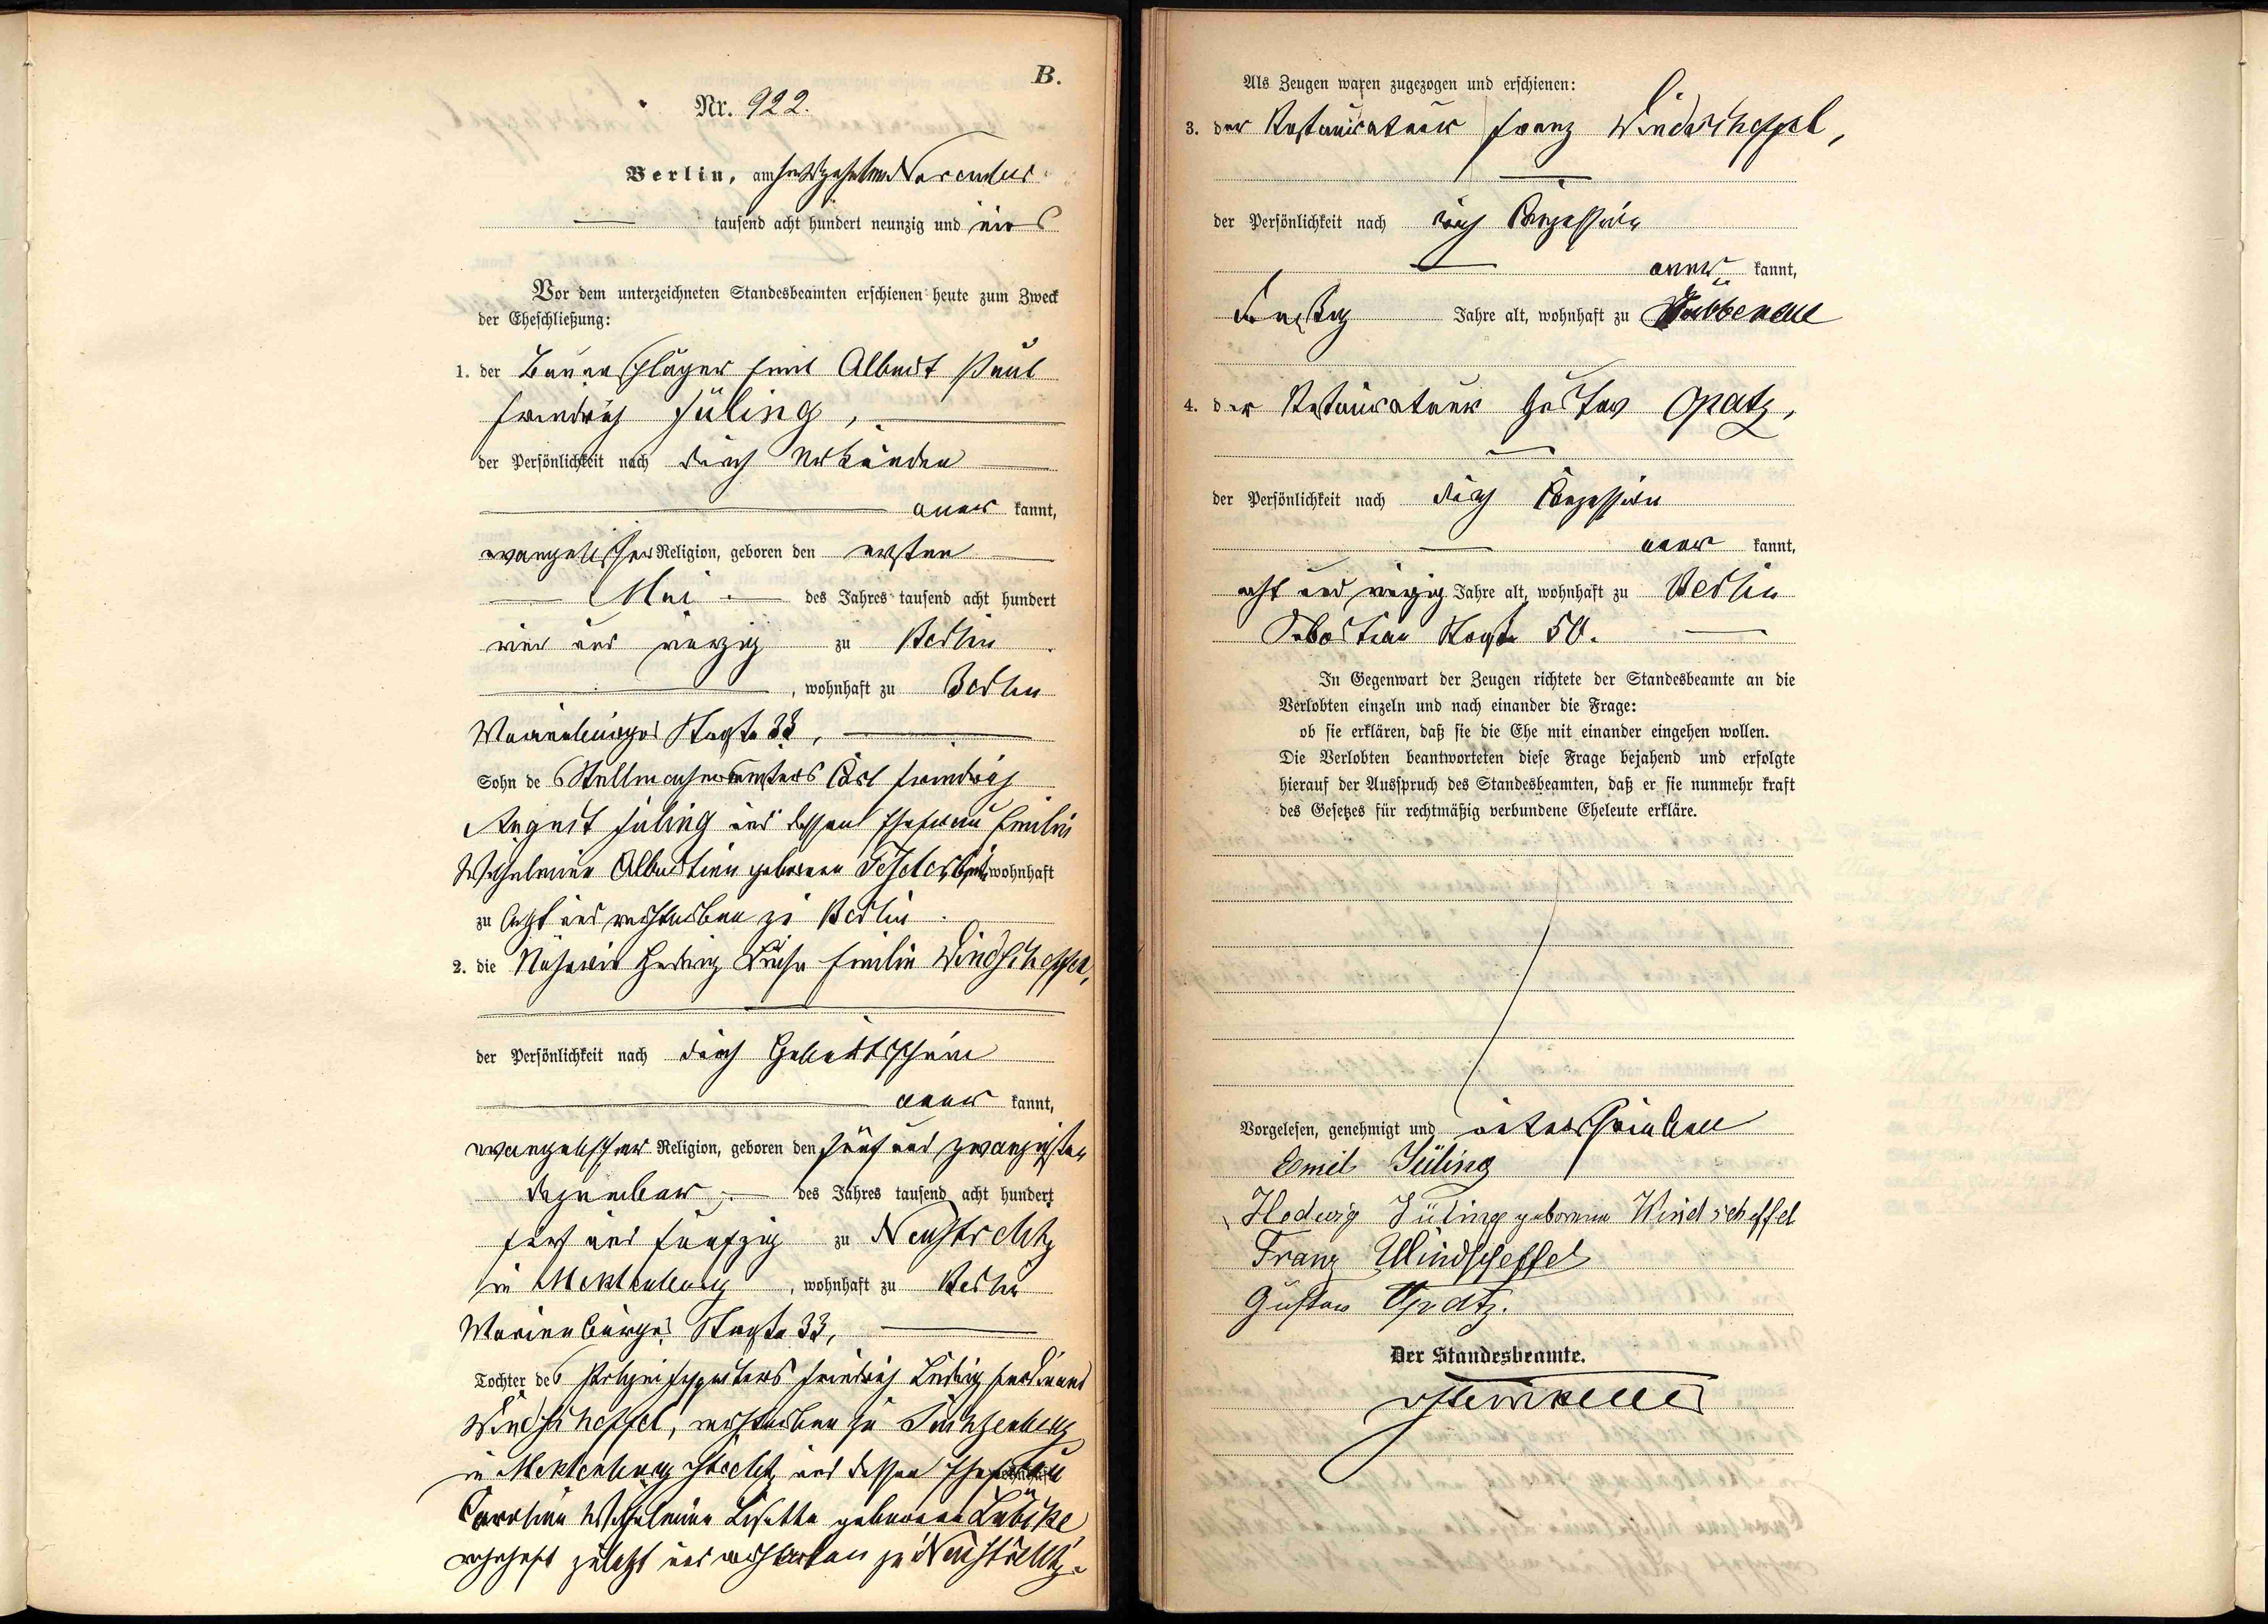 B.
Nr. 922.
Berlin, am sechszehnten November
tausend acht hundert neunzig und eins
Vor dem unterzeichneten Standesbeamten erschienen heute zum Zweck
der Eheschließung:
1. der Bauanschläger Emil Albert Paul
Friedrich Jüling,
der Persönlichkeit nach durch Urkunden
aner kannt,
evangelischer Religion, geboren den ersten
Mai des Jahres tausend acht hundert
vier und vierzig zu Berlin
, wohnhaft zu Berlin
Marienburger Straße 33,
Sohn des Stellmachermeisters Carl Friedrich
August Jüling und dessen Ehefrau Emilie
Wilhelmine Albertine geborenen wohnhaft
zu letzt und verstorben zu Berlin.
2. die Näherin Hedwig Luise Emilie Windscheffel,
der Persönlichkeit nach durch Geburtsschein
aner kannt,
evangelischer Religion, geboren den fünf und zwanzigsten
Dezember des Jahres tausend acht hundert
fünf und fünfzig zu Neustrelitz
in Mecklenburg, wohnhaft zu Berlin
Marienburger Straße 33,
Tochter des Friedrich Ludwig Ferdinand
Windscheffel, verstorben zu
in Mecklenburg Strelitz und dessen Ehefrau
Caroline Wilhelmine Lisette geborenen Lübcke
wohnhaft zuletzt und verstorben zu Neustrelitz.
Als Zeugen waren zugezogen und erschienen:
3. der Restaurateur Franz Windscheffel,
der Persönlichkeit nach durch Conzession
aner kannt,
dreißig Jahre alt, wohnhaft zu Lübbenau
4. der Restaurateur Gustav Opatz,
der Persönlichkeit nach durch Conzession
aner kannt,
acht und vierzig Jahre alt, wohnhaft zu Berlin
Sebastian Straße 50.
In Gegenwart der Zeugen richtete der Standesbeamte an die
Verlobten einzeln und nach einander die Frage:
ob sie erklären, daß sie die Ehe mit einander eingehen wollen.
Die Verlobten beantworteten diese Frage bejahend und erfolgte
hierauf der Ausspruch des Standesbeamten, daß er sie nunmehr kraft
des Gesetzes für rechtmäßig verbundene Eheleute erkläre.
Vorgelesen, genehmigt und unterschrieben
Emil Jüling
Hedwig Jüling geborene Windscheffel
Franz Windscheffel
Gustav Opatz.
Der Standesbeamte.